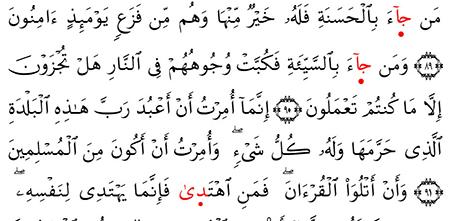 مَن جَآءَ بِٱلْحَسَنَةِ فَلَهُۥ خَيْرٌ مِّنْهَا وَهُم مِّن فَزَعٍ يَوْمَئِذٍ ءَامِنُونَ
﴿٨٩﴾ وَمَن جَآءَ بِٱلسَّيِّئَةِ فَكُبَّتْ وُجُوهُهُمْ فِى ٱلنَّارِ هَلْ تُجْزَوْنَ
إِلَّا مَا كُنتُمْ تَعْمَلُونَ ﴿٩٠﴾ إِنَّمَآ أُمِرْتُ أَنْ أَعْبُدَ رَبَّ هَٰذِهِ ٱلْبَلْدَةِ
ٱلَّذِى حَرَّمَهَا وَلَهُۥ كُلُّ شَىْءٍ ۖ وَأُمِرْتُ أَنْ أَكُونَ مِنَ ٱلْمُسْلِمِينَ
﴿٩١﴾ وَأَنْ أَتْلُوَا۟ ٱلْقُرْءَانَ ۖ فَمَنِ ٱهْتَدَىٰ فَإِنَّمَا يَهْتَدِى لِنَفْسِهِۦ ۖ